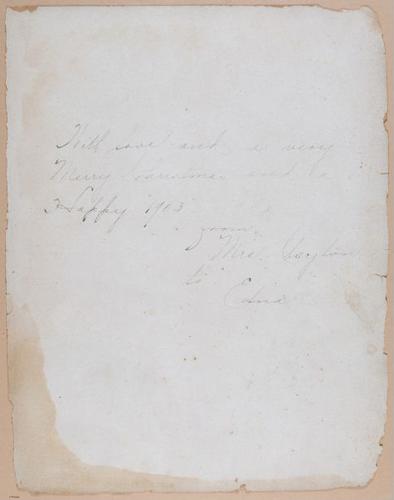 With love and a very
Merry Christmas and a
Happy 1903
from
Mrs. Layton
to
Edna